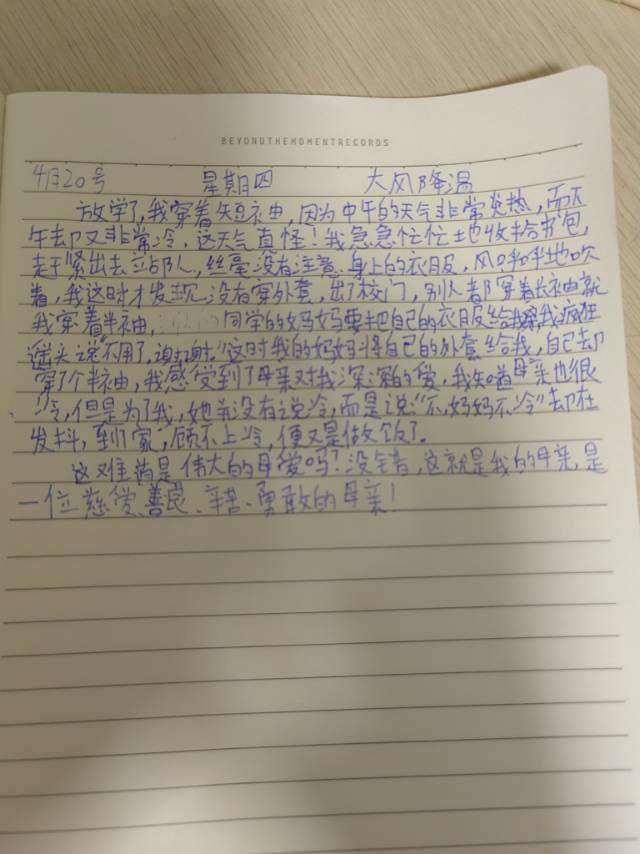 BEYONDTHEMOMENTRECORDS
4月20号 星期四 大风降温
放学了,我穿着短袖,因为中午的天气非常炎热,而下
午却又非常冷,这天气真怪!我急急忙忙地收拾书包,
赶紧出去站队,丝毫没有注意身上的衣服,风呼呼地吹
着,我这时才发现没有穿外套,出了校门,别人都穿着长袖就
我穿着半袖,同学的妈妈要把自己的衣服给我,我疯狂
摇头说"不用了,谢谢。"这时我的妈妈将自己的外套给我,自己却
穿了个半袖,我感受到了母亲对我深深的爱,我知道母亲也很
冷,但是为了我,她并没有说冷,而是说"不,妈妈不冷"却在
发抖,到了家,顾不上冷,便又是做饭了。
这又难道是伟大的母爱吗?没错,这就是我的母亲,是
一位慈爱、善良、辛苦、勇敢的母亲!